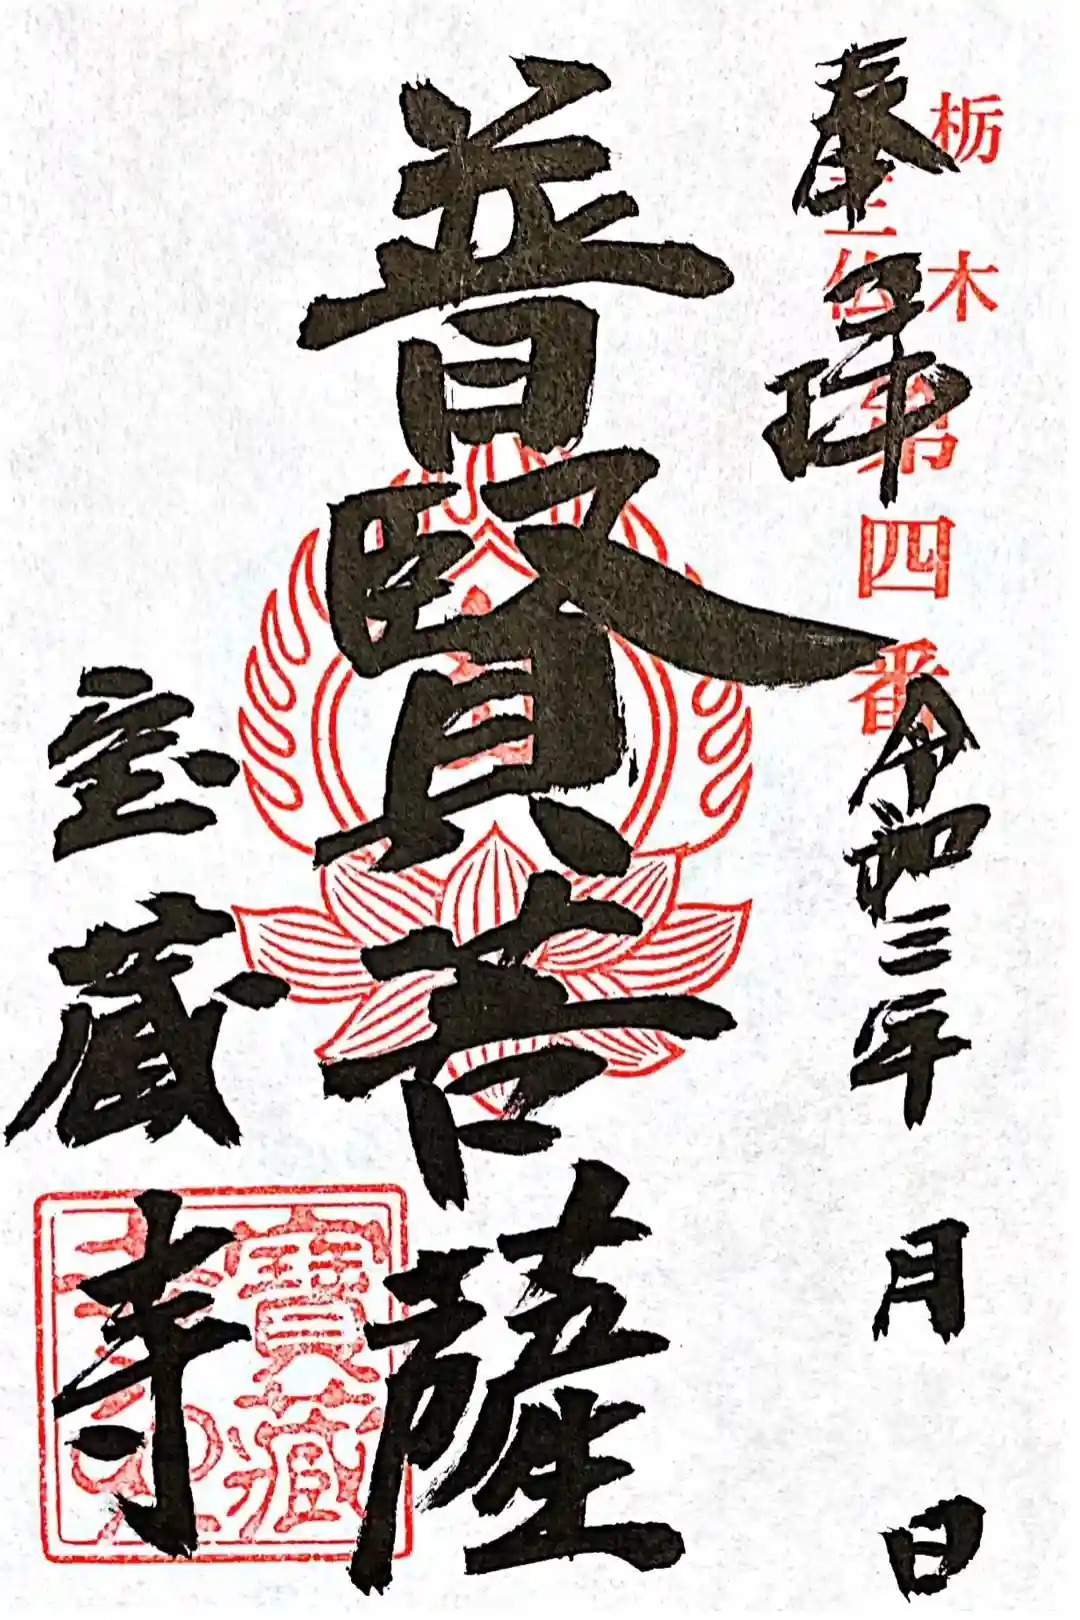 栃木
十三仏第四番
奉拝
令和三年 月 日
普賢菩薩
宝蔵寺
寶藏